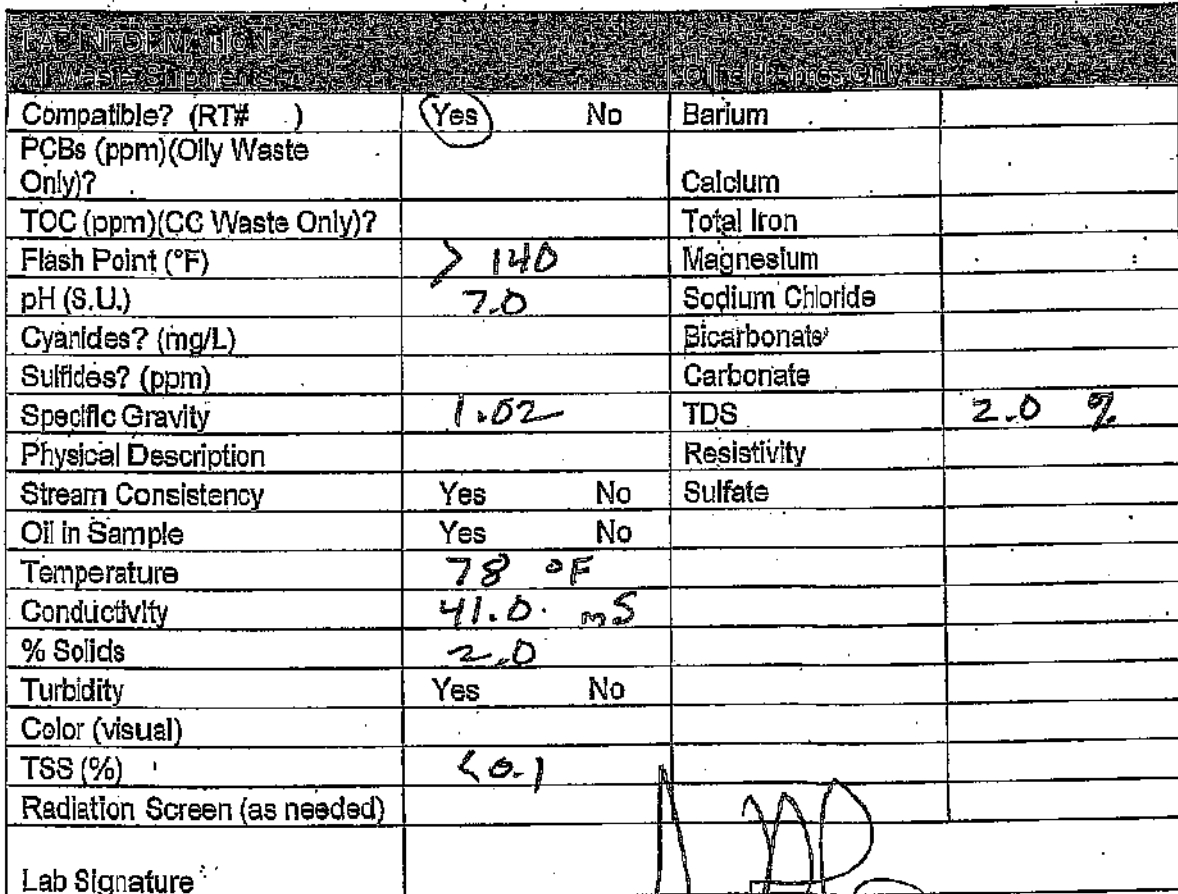 LAB INFORMATION
All Waste Shipments
Compatible? (RT# ) Yes No Barium
PCBs (ppm)(Oily Waste
Only)? Calcium
TOC (ppm)(CC Waste Only)? Total Iron
Flash Point (°F) > 140 Magnesium
pH (S.U.) 7.0 Sodium Chloride
Cyanides? (mg/L) Bicarbonate
Sulfides? (ppm) Carbonate
Specific Gravity 1.02 TDS 2.0 %
Physical Description Resistivity
Stream Consistency Yes No Sulfate
Oil in Sample Yes No
Temperature 78 °F
Conductivity 41.0 mS
% Solids 2.0
Turbidity Yes No
Color (visual)
TSS (%) <0.1
Radiation Screen (as needed)
Lab Signature